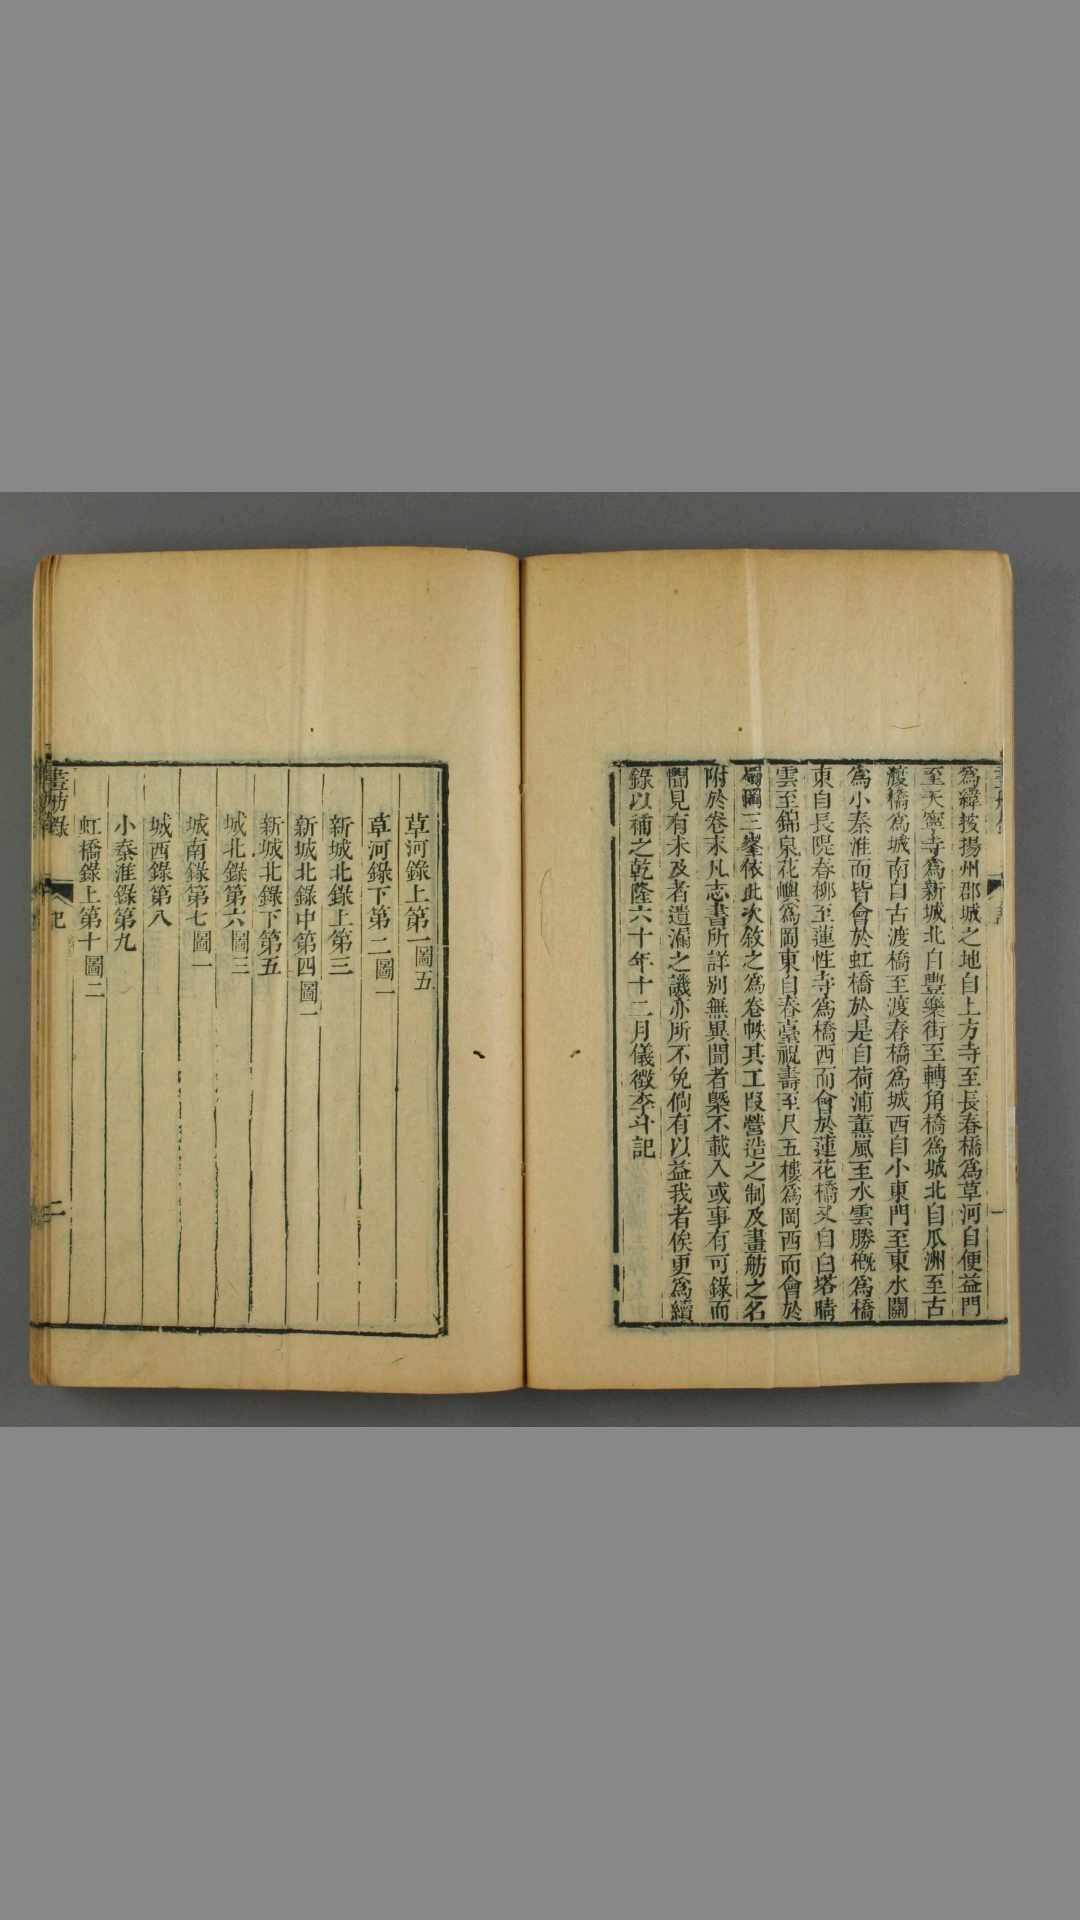 為緯按揚州郡城之地自上方寺至長春橋為草河自便益門
至天寧寺為新城北自豐樂街至轉角橋為城北自瓜洲至古
渡橋為城南自古渡橋至渡春橋為城西自小東門至東水關
為小秦淮而皆會於虹橋於是自荷浦薰風至水雲勝概為橋
東自長隄春柳至蓮性寺為橋西而會於蓮花橋又自白塔晴
雲至錦泉花嶼為岡東自春臺祝壽至尺五樓為岡西而會於
蜀岡三峯依此次敘之為卷帙其工段營造之制及畫舫之名
附於卷末凡志書所詳別無異聞者槩不載入或事有可錄而
聞見有未及者遺漏之譏亦所不免倘有以益我者俟更為續
錄以補之乾隆六十年十二月儀徵李斗記
草河錄上第一圖五
草河錄下第二圖一
新城北錄上第三
新城北錄中第四圖一
新城北錄下第五
城北錄第六圖三
城南錄第七圖一
城西錄第八
小秦淮錄第九
虹橋錄上第十圖二
畫舫錄 記 二